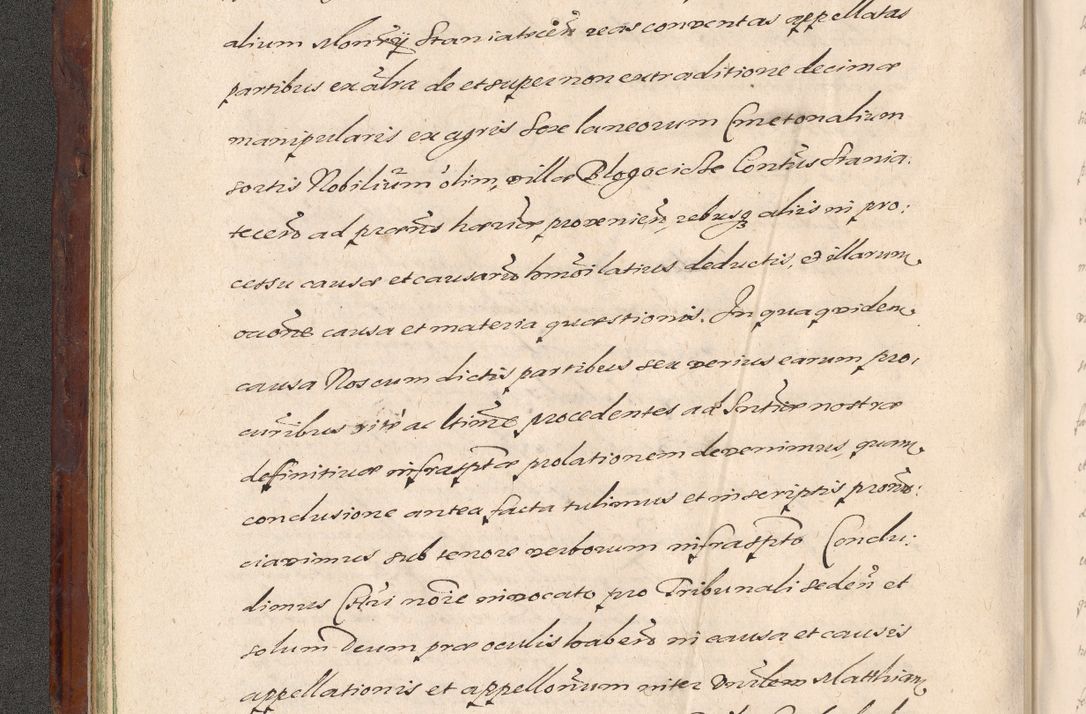 alium Monrÿ Staniatecen̄ reas conventas appellatas
partibus ex altra de et super non extraditione decimæ
manipularis ex agris sex laneorum Cmetonalium
sortis Nobilium olim, villæ Blogocicže Contus Stania:
tecen̄ ad præns hæriæ provenien̄, rebusq aliis in pro:
cessu causæ et causarū hmōi latius deductis, et illarum
occōne causa et materia quæstionis. In qua quidem
causa Nos cum dictis partibus seu verius earum pro:
curibus rite ac ltime procedentes ad sntiæ nostræ
definitivæ infrasptæ prolationem devenimus, quam
conclusione antea facta tulimus et in scriptis pronū:
ciavimus sub tenore verborum infraspto Conclu:
dimus Chri noīe invocato pro Tribunali seden̄ et
solum Deum præ oculis haben̄ in causa et causis
appellationis et appellonum inter Vnrlem Matthiam